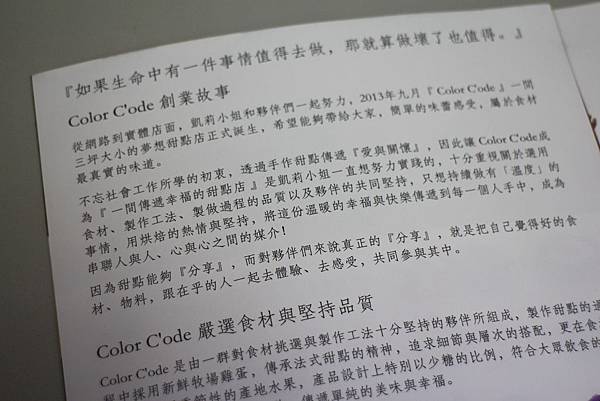 『如果生命中有一件事情值得去做，那就算做壞了也值得。』
Color C'ode 創業故事
從網路到實體店面，凱莉小姐和夥伴們一起努力，2013年九月『 Color C'ode 』一間
三坪大小的夢想甜點店正式誕生，希望能夠帶給大家，簡單的味蕾感受，屬於食材
最真實的味道。
不忘社會工作所學的初衷，透過手作甜點傳遞『愛與關懷』，因此讓 Color C'ode成
為『 一間傳遞幸福的甜點店 』是凱莉小姐一直想努力實踐的，十分重視關於選用
食材、製作工法、製做過程的品質以及夥伴的共同堅持，只想持續做有「溫度」的
事情，用烘焙的熱情與堅持，將這份溫暖的幸福與快樂傳遞到每一個人手中，成為
串聯人與人、心與心之間的媒介！
因為甜點能夠『分享』，而對夥伴們來說真正的『分享』，就是把自己覺得好的食
材、物料，跟在乎的人一起去體驗、去感受，共同參與其中。
Color C'ode 嚴選食材與堅持品質
Color C'ode 是由一群對食材挑選與製作工法十分堅持的夥伴所組成，製作甜點的過
程中採用新鮮牧場雞蛋，傳承法式甜點的精神，追求細節與層次的搭配，更在食
季節性的產地水果，產品設計上特別以少糖的比例，符合大眾飲食的
傳遞單純的美味與幸福。